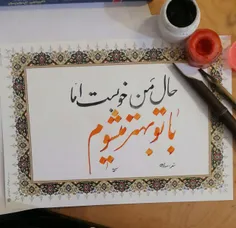 حال من خوبست اما
با تو بهتر میشوم